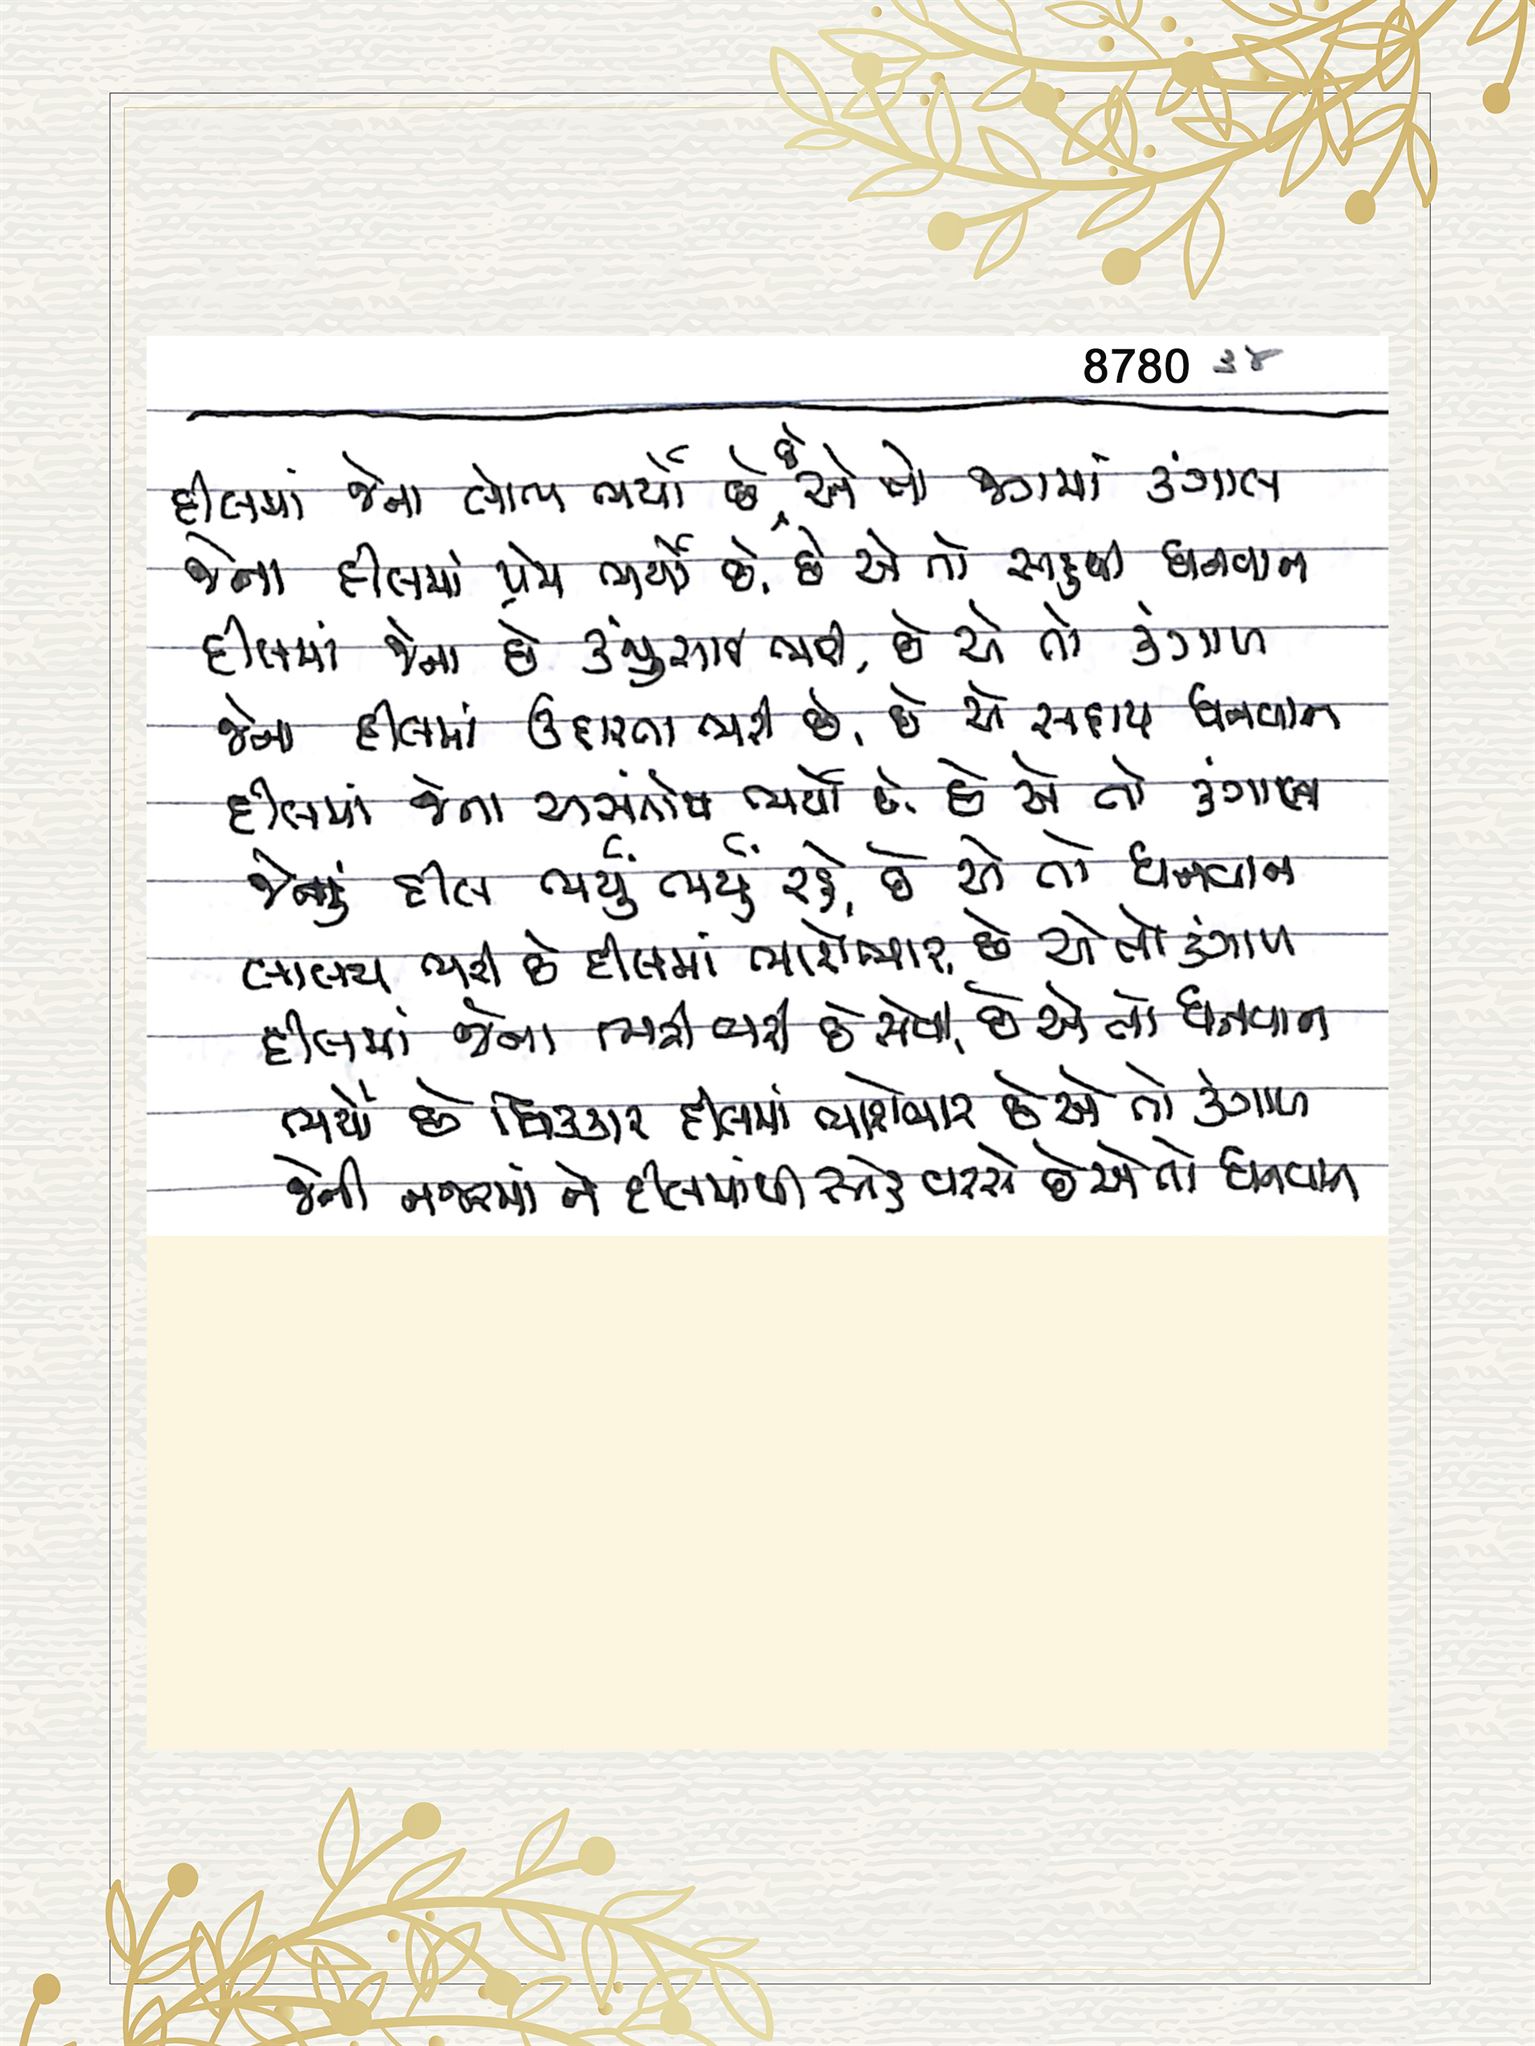 8780 ૩૪
દીલમાં જેના લોભ ભર્યો છે, છે એ તો જગમાં કંગાલ
જેના દીલમાં પ્રેમ ભર્યો છે, છે એ તો ધનવાન
દીલમાં જેના છે કંજુસાઈ ભરી, છે એ તો કંગાળ
જેના દીલમાં ઉદારતા ભરી છે, છે એ સદાય ધનવાન
દીલમાં જેના અસંતોષ ભર્યો છે, છે એ તો કંગાળ
જેનું દીલ ભર્યું ભર્યું રહે, છે એ તો ધનવાન
લાલચ ભરી છે દીલમાં ભારોભાર, છે એ તો કંગાળ
દીલમાં જેના ભરી ભરી છે સેવા, છે એ તો ધનવાન
ભર્યો છે ધિક્કાર દીલમાં ભારોભાર છે એ તો કંગાળ
જેની નજરમાં ને દીલમાંથી સ્નેહ વરસે છે એ તો ધનવાન